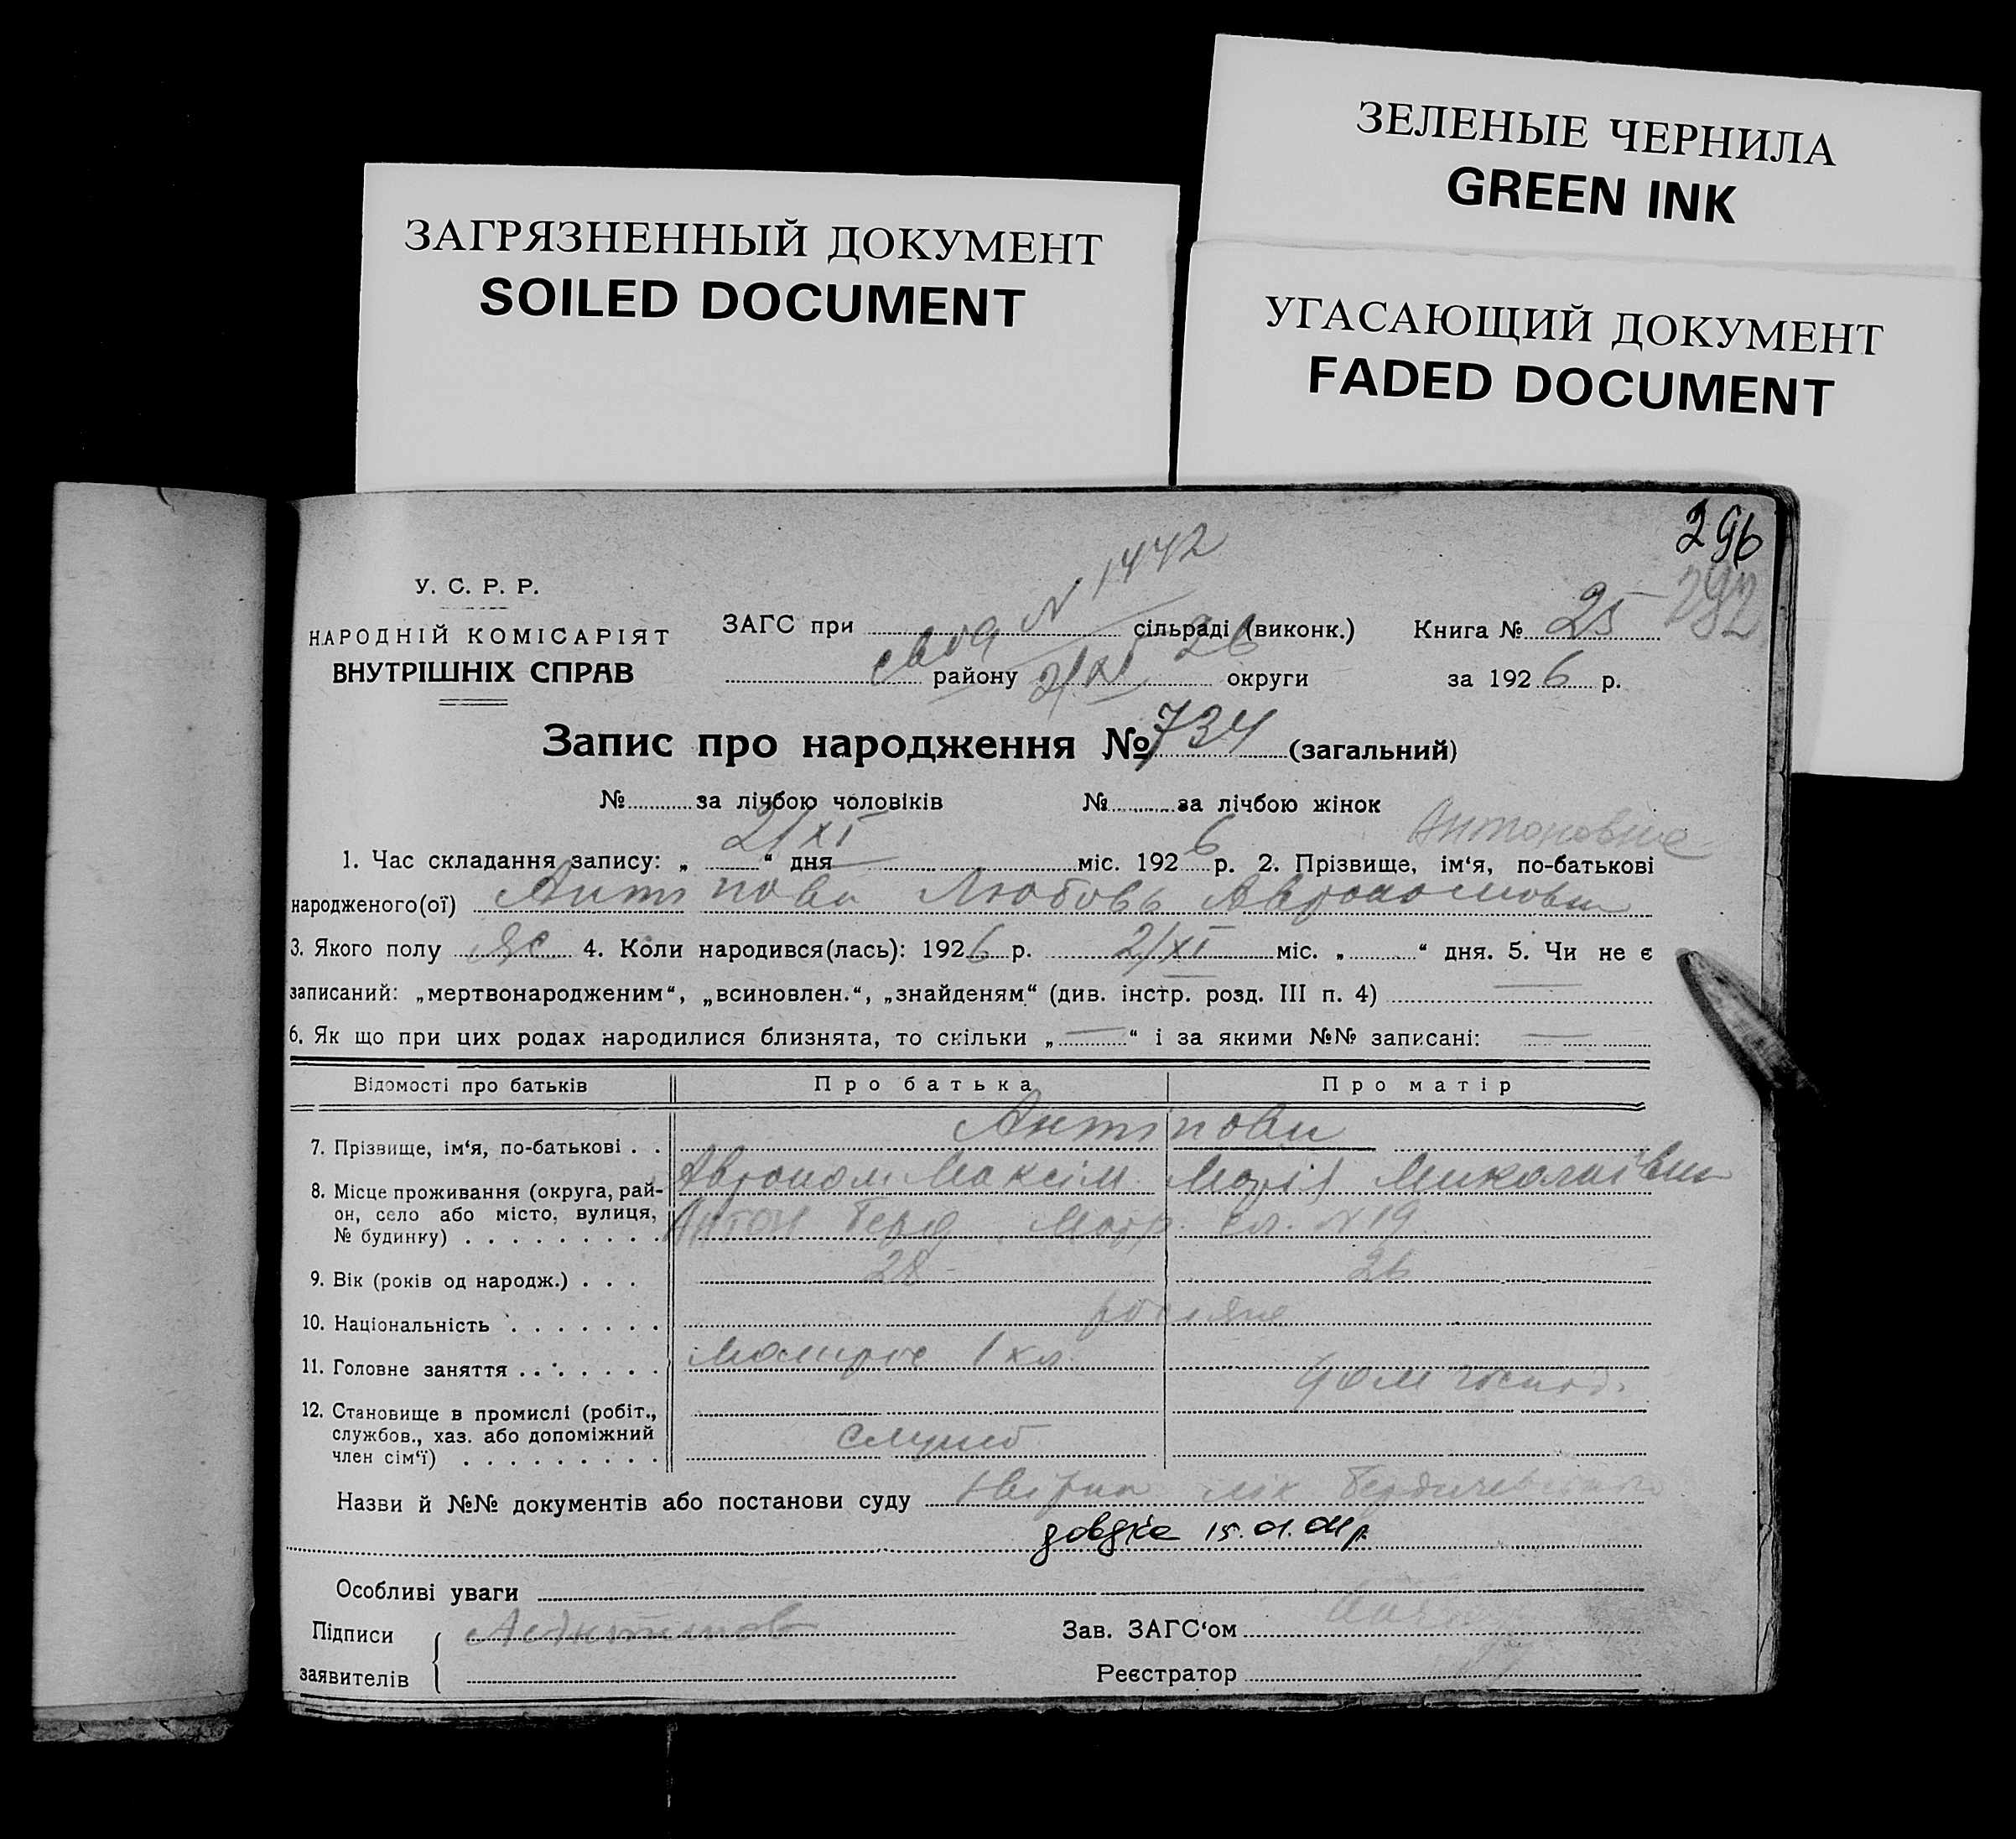 ЗЕЛЕНЫЕ ЧЕРНИЛА
GREEN INK
ЗАГРЯЗНЕННЫЙ ДОКУМЕНТ
SOILED DOCUMENT
УГАСАЮЩИЙ ДОКУМЕНТ
FADED DOCUMENT
296
282
У. С. Р. Р.
НАРОДНІЙ КОМІСАРІЯТ
ВНУТРІШНІХ СПРАВ
N 1442
ЗАГС при сільраді (виконк.) Книга № 25
району 21/XI 26 округи за 1926 р.
Запис про народження № 734 (загальний)
№ за лічбою чоловіків № за лічбою жінок
Антоновна
1. Час складання запису: „ 21/XI “ дня міс. 1926 р. 2. Прізвище, ім‘я, по-батькові
народженого(ої) Антіпова Любовь Автономовна
3. Якого полу ж 4. Коли народився(лась): 1926 р. 2/XI міс. „ “ дня. 5. Чи не є
записаний: „мертвонародженим“, „всиновлен.“, „знайденям“ (див. інстр. розд. III п. 4) —
6. Як що при цих родах народилися близнята, то скільки „—“ і за якими №№ записані: —
Відомості про батьків Про батька Про матір
7. Прізвище, ім‘я, по-батькові . . Антіпови
Автоном Максім. Марія Миколаївна
8. Місце проживання (округа, рай-
он, село або місто, вулиця,
№ будинку) Антон Берд. вл. N 19
9. Вік (років од народж.) . . . 28 26
10. Національність росіяне
11. Головне заняття 1 кл. дом господ.
12. Становище в промислі (робіт.,
службов., хаз. або допоміжний
член сім‘ї) служб
Назви й №№ документів або постанови суду Бердичевського
довідка 15.01.01 р.
Особливі уваги
Підписи Антипов Зав. ЗАГС‘ом
заявителів Реєстратор